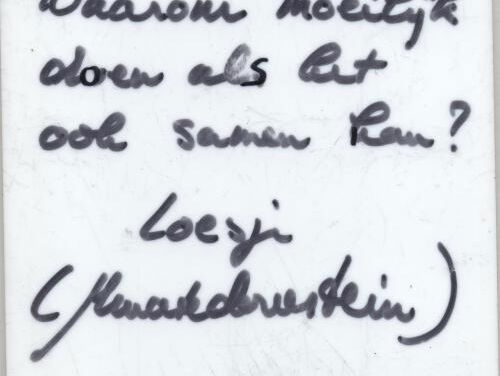 Waarom moeilijk
doen als het
ook samen kan?
Loesje